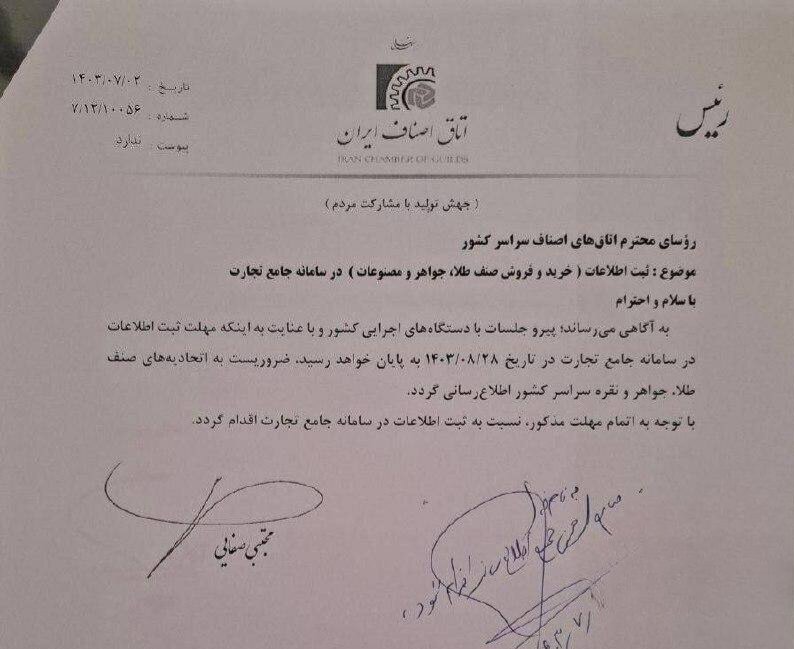 رئیس
اتاق اصناف ایران
IRAN CHAMBER OF GUILDS
تاریخ : ۱۴۰۳/۰۷/۰۲
شماره : ۷/۱۲/۱۰۰۵۶
پیوست : ندارد
( جهش تولید با مشارکت مردم )
رؤسای محترم اتاق‌های اصناف سراسر کشور
موضوع : ثبت اطلاعات ( خرید و فروش صنف طلا، جواهر و مصنوعات ) در سامانه جامع تجارت
با سلام و احترام
به آگاهی می‌رساند؛ پیرو جلسات با دستگاه‌های اجرایی کشور و با عنایت به اینکه مهلت ثبت اطلاعات
در سامانه جامع تجارت در تاریخ ۱۴۰۳/۰۸/۲۸ به پایان خواهد رسید، ضروریست به اتحادیه‌های صنف
طلا، جواهر و نقره سراسر کشور اطلاع‌رسانی گردد.
با توجه به اتمام مهلت مذکور، نسبت به ثبت اطلاعات در سامانه جامع تجارت اقدام گردد.
مجتبی صفایی
اطلاع رسانی
شود